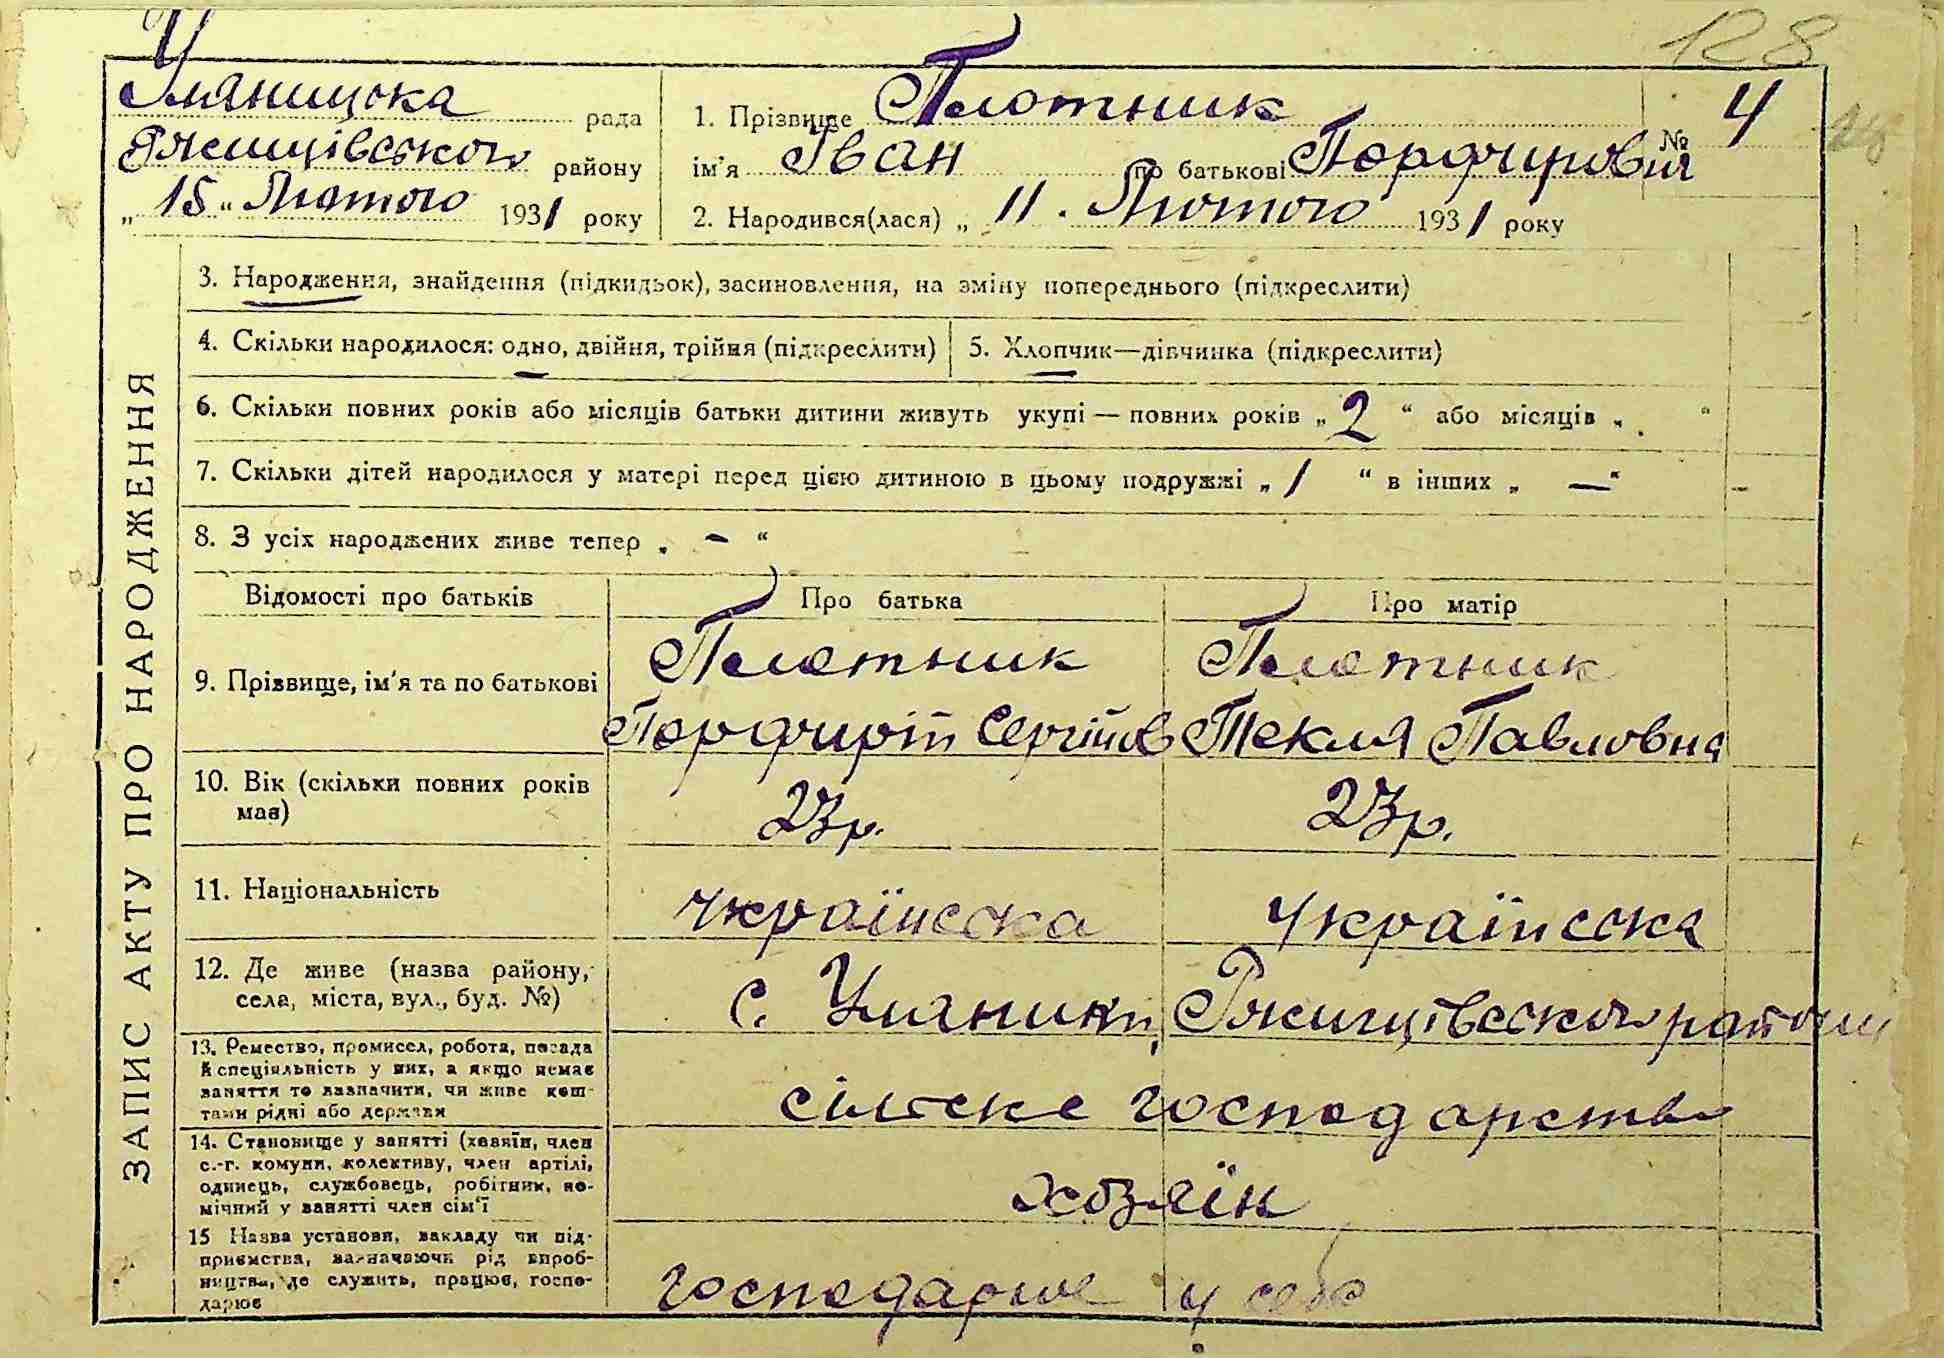 128
Уляницька рада
Ржищівського району
„15“ Лютого 1931 року
1. Прізвище Плотник № 4
ім'я Іван по батькові Порфирович
2. Народився(лася) „ 11. Лютого 1931 року
ЗАПИС АКТУ ПРО НАРОДЖЕННЯ
3. Народження, знайдення (підкидьок), засиновлення, на зміну попереднього (підкреслити)
4. Скільки народилося: одно, двійня, трійня (підкреслити) 5. Хлопчик—дівчинка (підкреслити)
6. Скільки повних років або місяців батьки дитини живуть укупі — повних років „ 2 “ або місяців „ “
7. Скільки дітей народилося у матері перед цією дитиною в цьому подружжі „ 1 “ в інших „ — “
8. З усіх народжених живе тепер „ - “
Відомості про батьків Про батька Про матір
9. Прізвище, ім'я та по батькові
Плотник Плотник
Порфирій Сергійов Текля Павловна
10. Вік (скільки повних років
має)
23р. 23р.
11. Національність українська українська
12. Де живе (назва району,
села, міста, вул., буд. №)
с. Уляники, Ржищівського району
13. Ремество, промисел, робота, посада
й спеціяльність у них, а якщо немає
заняття то зазначити, чи живе кош-
тами рідні або держави
сільске господарство
14. Становище у занятті (хазяїн, член
с.-г. комуни, колективу, член артілі,
одинець, службовець, робітник, по-
мічний у занятті член сім'ї
хозяїн
15 Назва установи, закладу чи під-
приємства, зазначаючи рід вироб-
ництва, де служить, працює, госпо-
дарює
господарює у себе